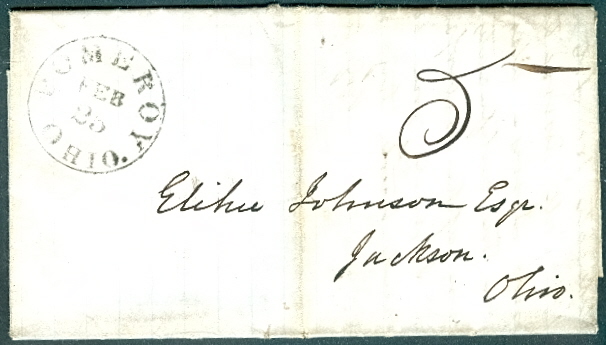 POMEROY. OHIO
FEB
25
5
Elihu Johnson Esqr.
Jackson.
Ohio.